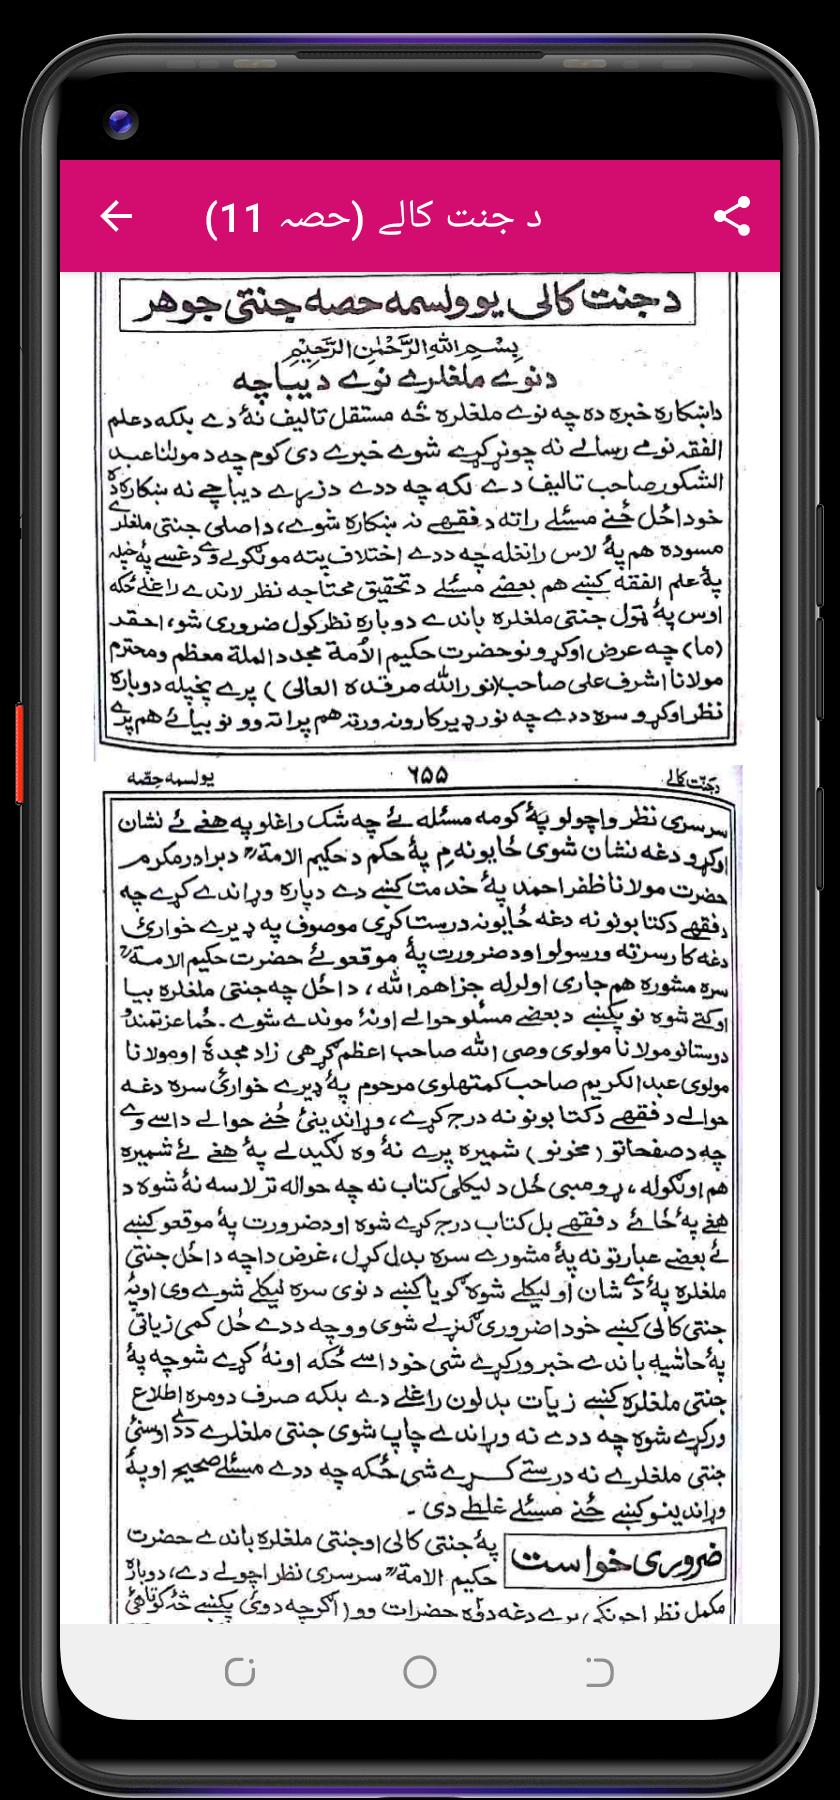 د جنت کالے (حصہ 11)
د جنت کالی یوولسمه حصه جنتی جوهر
بِسْمِ اللهِ الرَّحْمٰنِ الرَّحِيْمِ
د نوے ملغلرے نوے دیباچه
داښکاره خبره ده چه نوے ملغلره څه مستقل تالیف نهٔ دے بلکه د علم
الفقه نومے رسالے نه چونړ کړے شوے خبرے دی کوم چه د مولٰنا عبد
الشکور صاحب تالیف دے لکه چه ددے د زړے دیباچے نه ښکاره ده
خو داځل ځنے مسئلے راته د فقهے نه ښکاره شوے، د اصلی جنتی ملغلرے
مسوده هم پهٔ لاس رانغله چه ددے اختلاف پته مو لګولے وے دغسے پهٔ خپله
پهٔ علم الفقه کښے هم بعضے مسئلے د تحقیق محتاجه نظر لاندے راغلے ځکه
اوس پهٔ ټول جنتی ملغلره باندے دوباره نظر کول ضروری شو، احقر
(ما) چه عرض اوکړو نو حضرت حکیم الاُمة مجدد الملة معظم ومحترم
مولانا اشرف علی صاحب (نور الله مرقده العالی) پرے پخپله دوباره
نظر اوکړو سره ددے چه نور ډیر کارونه ورته هم پراته وو نو بیائے هم پرے
د جنت کالے ۶۵۵ یولسمه حصّه
سرسری نظر واچولو پهٔ کومه مسئله ئے چه شک راغلو په هغے ئے نشان
اوکړو دغه نشان شوی ځایونه م پهٔ حکم د حکیم الامة ؒ د برادر مکرم
حضرت مولانا ظفر احمد پهٔ خدمت کښے دے دپاره وړاندے کړے چه
د فقهے د کتابونو نه دغه ځایونه درست کړی موصوف په ډیرے خوارئ
دغه کار سر ته ورسولو او د ضرورت پهٔ موقعو ئے حضرت حکیم الامة ؒ
سره مشوره هم جاری اولرله جزاهم الله، داځل چه جنتی ملغلره بیا
اوکتے شوه نو پکښے د بعضے مسئلو حوالے اونهٔ موندے شوے. ځما عزتمندو
دوستانو مولانا مولوی وصی الله صاحب اعظم ګړهی زاد مجدهٗ او مولانا
مولوی عبد الکریم صاحب کمتهلوی مرحوم پهٔ ډیرے خوارئ سره دغه
حوالے د فقهے د کتابونو نه درج کړے، وړاندینئ ځنے حوالے داسے وے
چه د صفحاتو (مخونو) شمیره پرے نهٔ وه لګیدلے پهٔ هغے ئے شمیره
هم اولګوله، ړومبی ځل د لیکلی کتاب نه چه حواله تر لاسه نهٔ شوه د
هغے پهٔ ځائے د فقهے بل کتاب درج کړے شوه او د ضرورت پهٔ موقعو کښے
ئے بعضے عبارتونه پهٔ مشورے سره بدل کړل، غرض دا چه داځل جنتی
ملغلره پهٔ دے شان اولیکلے شوه ګویا کښے د نوی سره لیکلے شوے وی او پهٔ
جنتی کالی کښے خو دا ضروری ګنړلے شوی وو چه ددے ځل کمی زیاتی
پهٔ حاشیه باندے خبر ورکړے شی خو داسے ځکه اونهٔ کړے شو چه پهٔ
جنتی ملغلره کښے زیات بدلون راغلے دے بلکه صرف دومره اطلاع
ورکړے شوه چه ددے نه وړاندے چاپ شوی جنتی ملغلرے ددے اوسنئ
جنتی ملغلرے نه درستے کړے شی ځکه چه ددے مسئلے صحیح او پهٔ
وړاندینو کښے ځنے مسئلے غلطے دی .
ضروری خواست
پهٔ جنتی کالی او جنتی ملغلره باندے حضرت
حکیم الامة ؒ سرسری نظر اچولے دے، دوباره
مکمل نظر اچونکی پرے دغه دوه حضرات وو (اګرچه دوئ پکښے څه کوتاهی